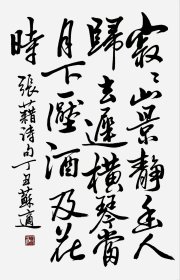 寂〻山景靜幽人
歸去遲橫琴當
月下壓酒及花
時
張藉诗句丁丑蘇適